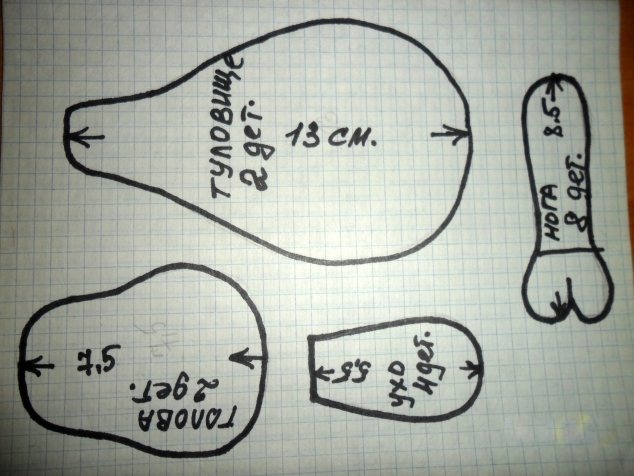 ТУЛОВИЩЕ
2 дет.
13 см.
НОГА 8.5
8 дет.
7,5
ГОЛОВА
2 дет.
5,5
УХО
4 дет.